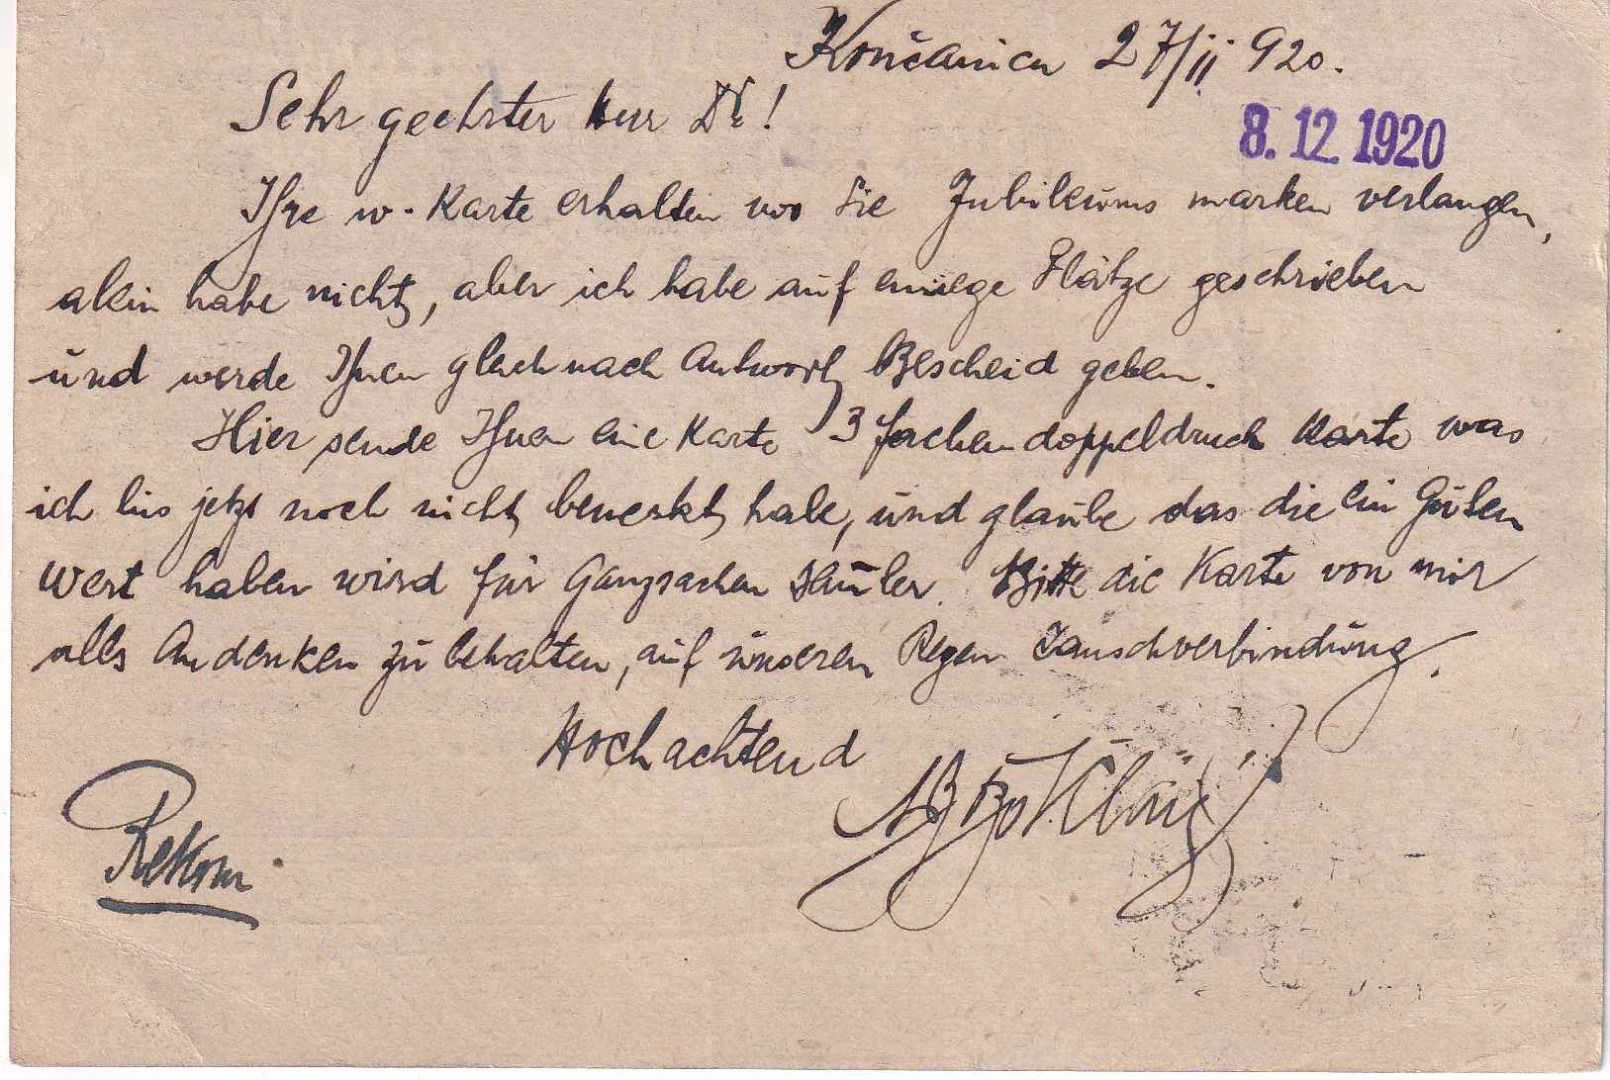 Končanica 27/11 920.
Sehr geehrter Herr Dr!
8. 12. 1920
Ihre w. Karte erhalten wo Sie Jubileums marken verlangen,
alein habe nicht, aber ich habe auf einiege Plätze geschrieben
und werde Ihnen gleich nach Antwort Bescheid geben.
Hier sende Ihnen eine Karte 3 fachen doppeldruck Karte was
ich bis jetzt noch nicht bemerkt habe, und glaube das die ein Guten
Wert haben wird für Ganzsachen Samler. Bitte die Karte von mir
alls Andenken zu behalten, auf unseren Regen Tauschverbindung.
Hochachtend
Rekom.